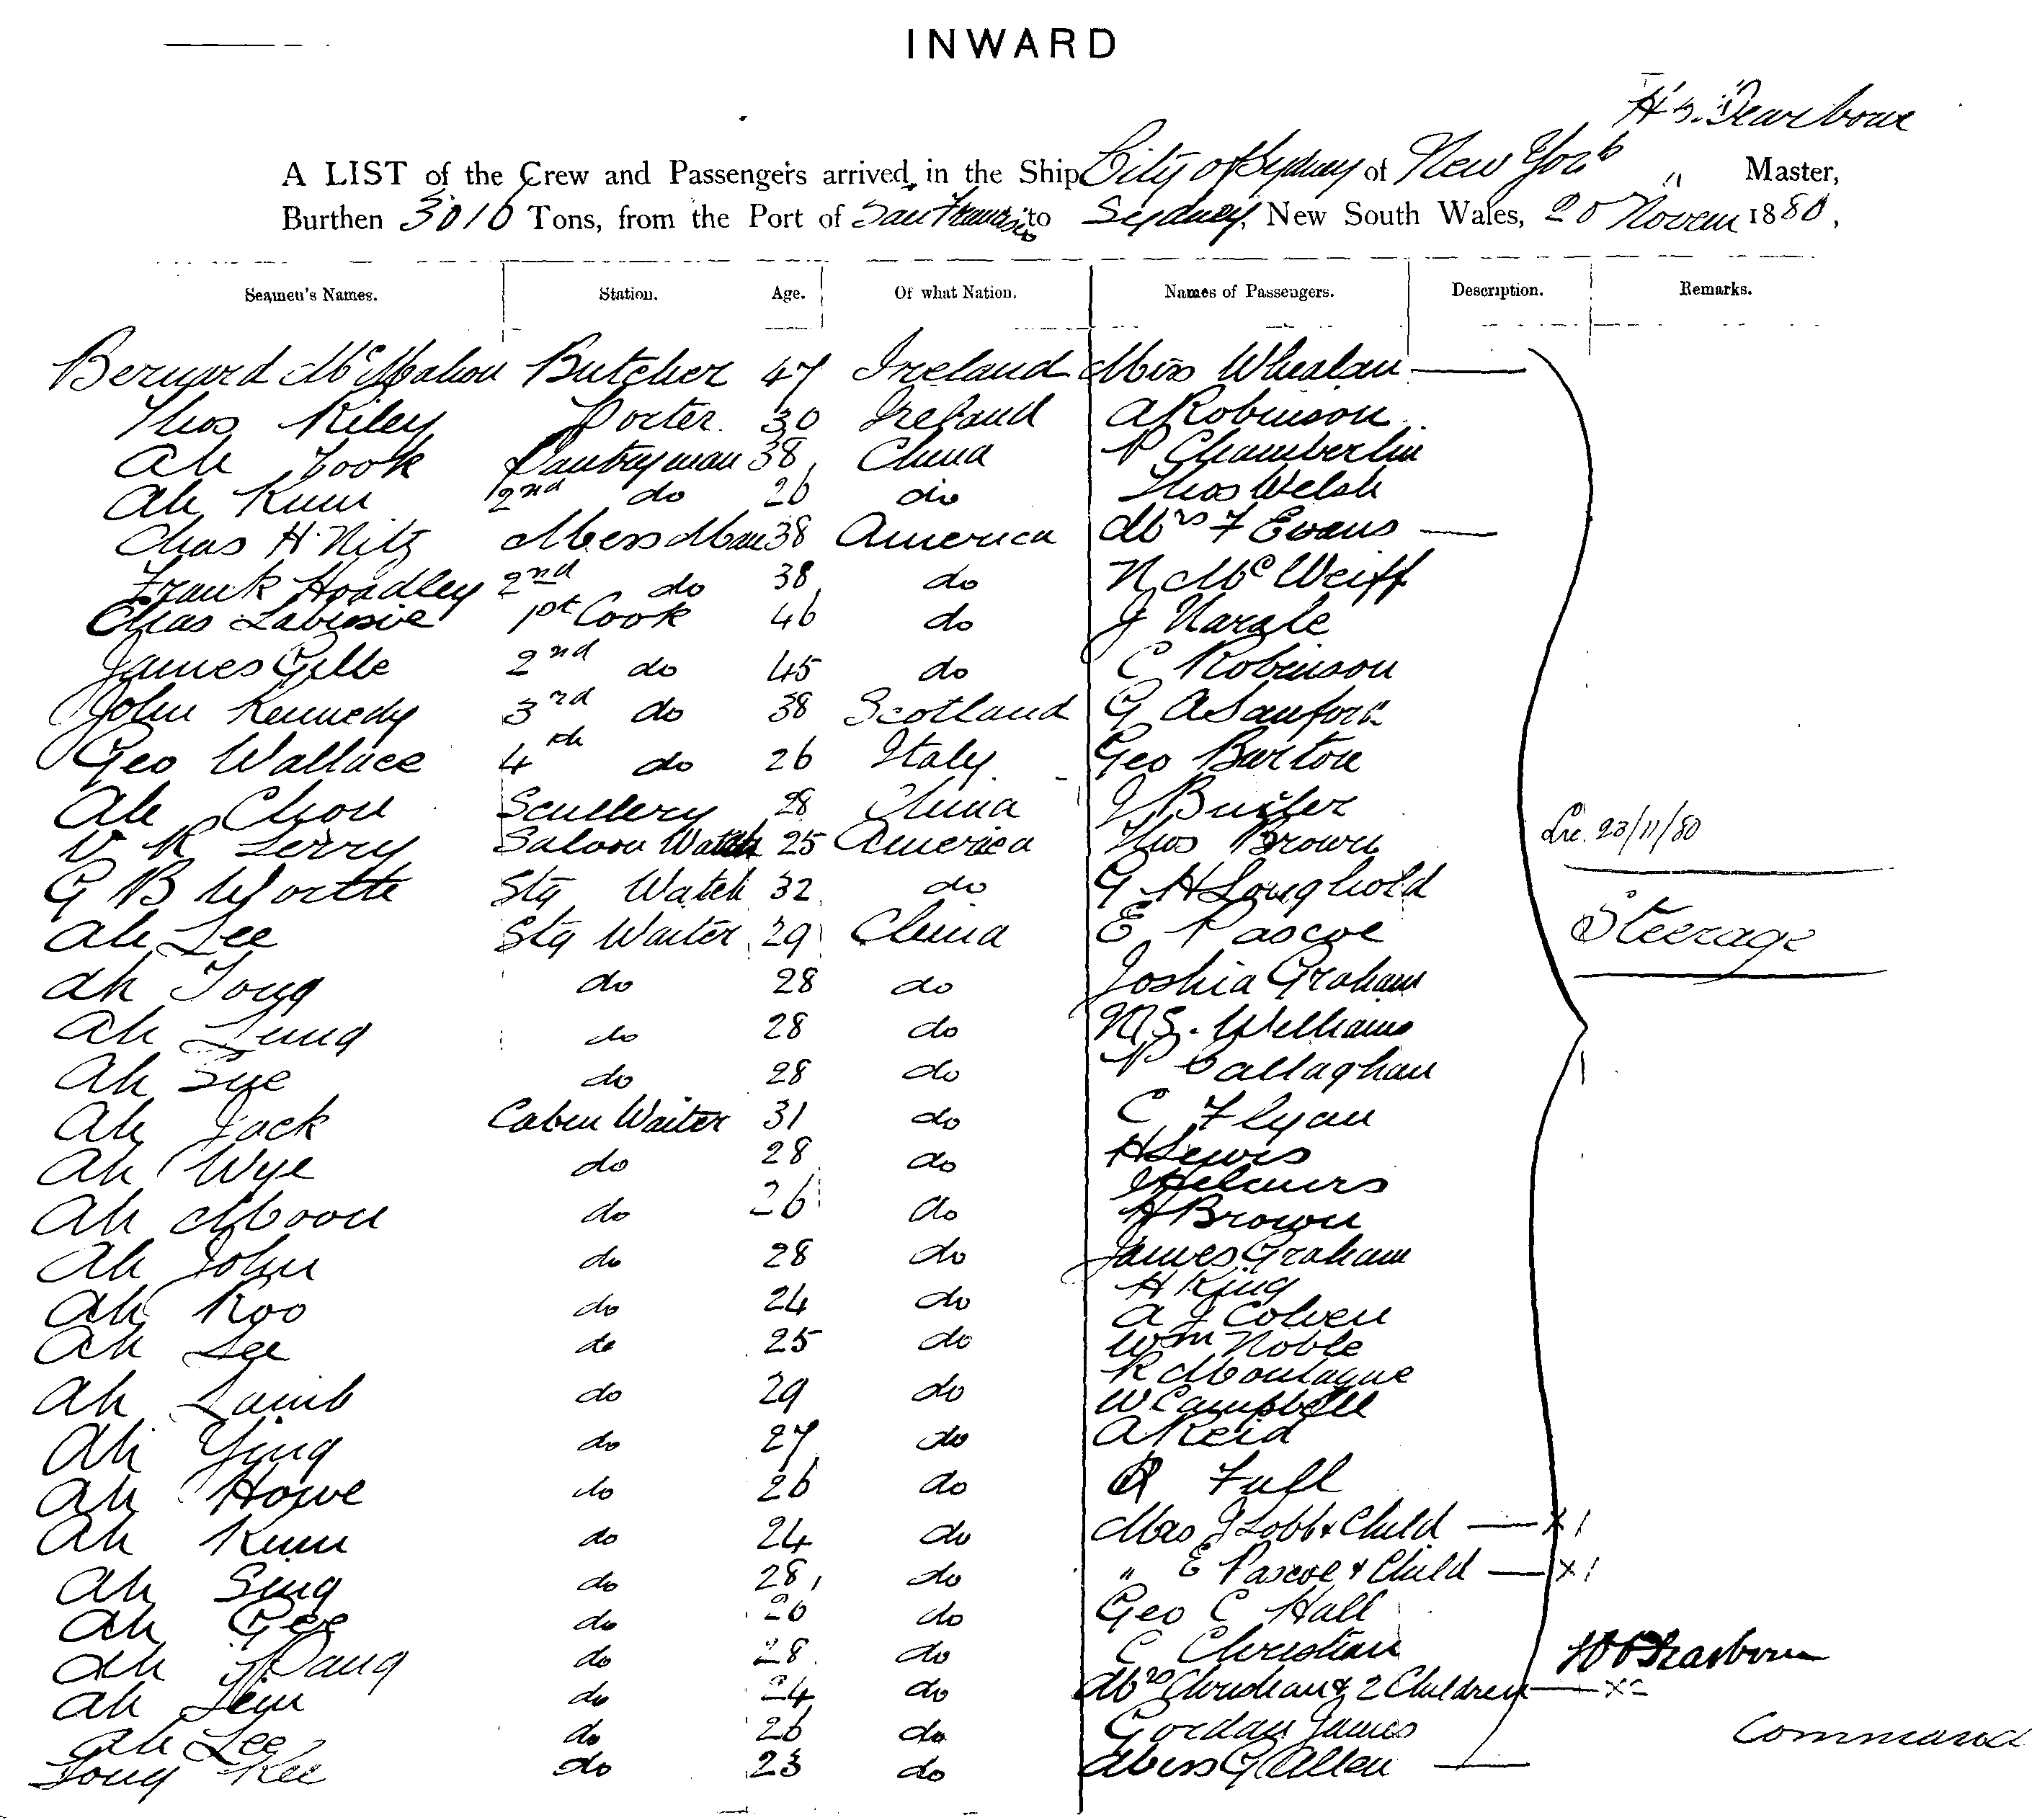 INWARD
H. G. Dearborne
A LIST of the Crew and Passengers arrived in the Ship City of Sydney of New York " Master,
Burthen 3016 Tons, from the Port of San Francisco to Sydney, New South Wales, 20 Novem 1880,
Seamen's Names. Station. Age. Of what Nation. Names of Passengers. Description. Remarks.
Bernard McMahon Butcher 47 Ireland Miss Whealan
Thos Riley Porter 30 Ireland A Robinson
Ah Took Pantryman 38 China P Chamberlin
Ah Kum 2nd do 26 do Thos Welsh
Chas H. Nitz Mess Man 38 America Mrs F Evans
Frank Hoadley 2nd do 38 do N McWeiff
Chas 1st Cook 46 do J Nargle
James Gille 2nd do 45 do C Robinson
John Kennedy 3rd do 38 Scotland G A Sanford
Geo Wallace 4th do 26 Italy Geo Barton
Ah Chon Scullery 28 China J Butler
V R Terry Saloon Watch 25 America Thos Brown
Lre. 23/11/80
G B Worth Stg Watch 32 do G H Longhold
Ah Lee Stg Waiter 29 China E Pascoe Steerage
Ah Tong do 28 do Joshia Graham
Ah Lung do 28 do W. S. Williams
Ah Sye do 28 do P Callaghan
Ah Jack Cabin Waiter 31 do C Flynn
Ah Wye do 28 do H Lewis
Hilmers
Ah Moon do 26 do H Brown
Ah John do 28 do James Graham
H King
Ah Koo do 24 do A J Colven
Ah See do 25 do Wm Noble
R Montague
Ah Lamb do 29 do W Campbell
Ah Ying do 27 do A Reid
Ah Howe do 26 do R Full
Ah Kum do 24 do Mrs J Lobb & Child x 1
Ah Sing do 28 do " E Pascoe & Child x 1
Ah Gee do 26 do Geo C Hall
Ah Pang do 28 do C Christian HG Dearborne
Ah Lem do 24 do Mrs Christian & 2 Children x 2
Ah Lee do 26 do Gordan James Command
Tong Kee do 23 do Miss G Allen